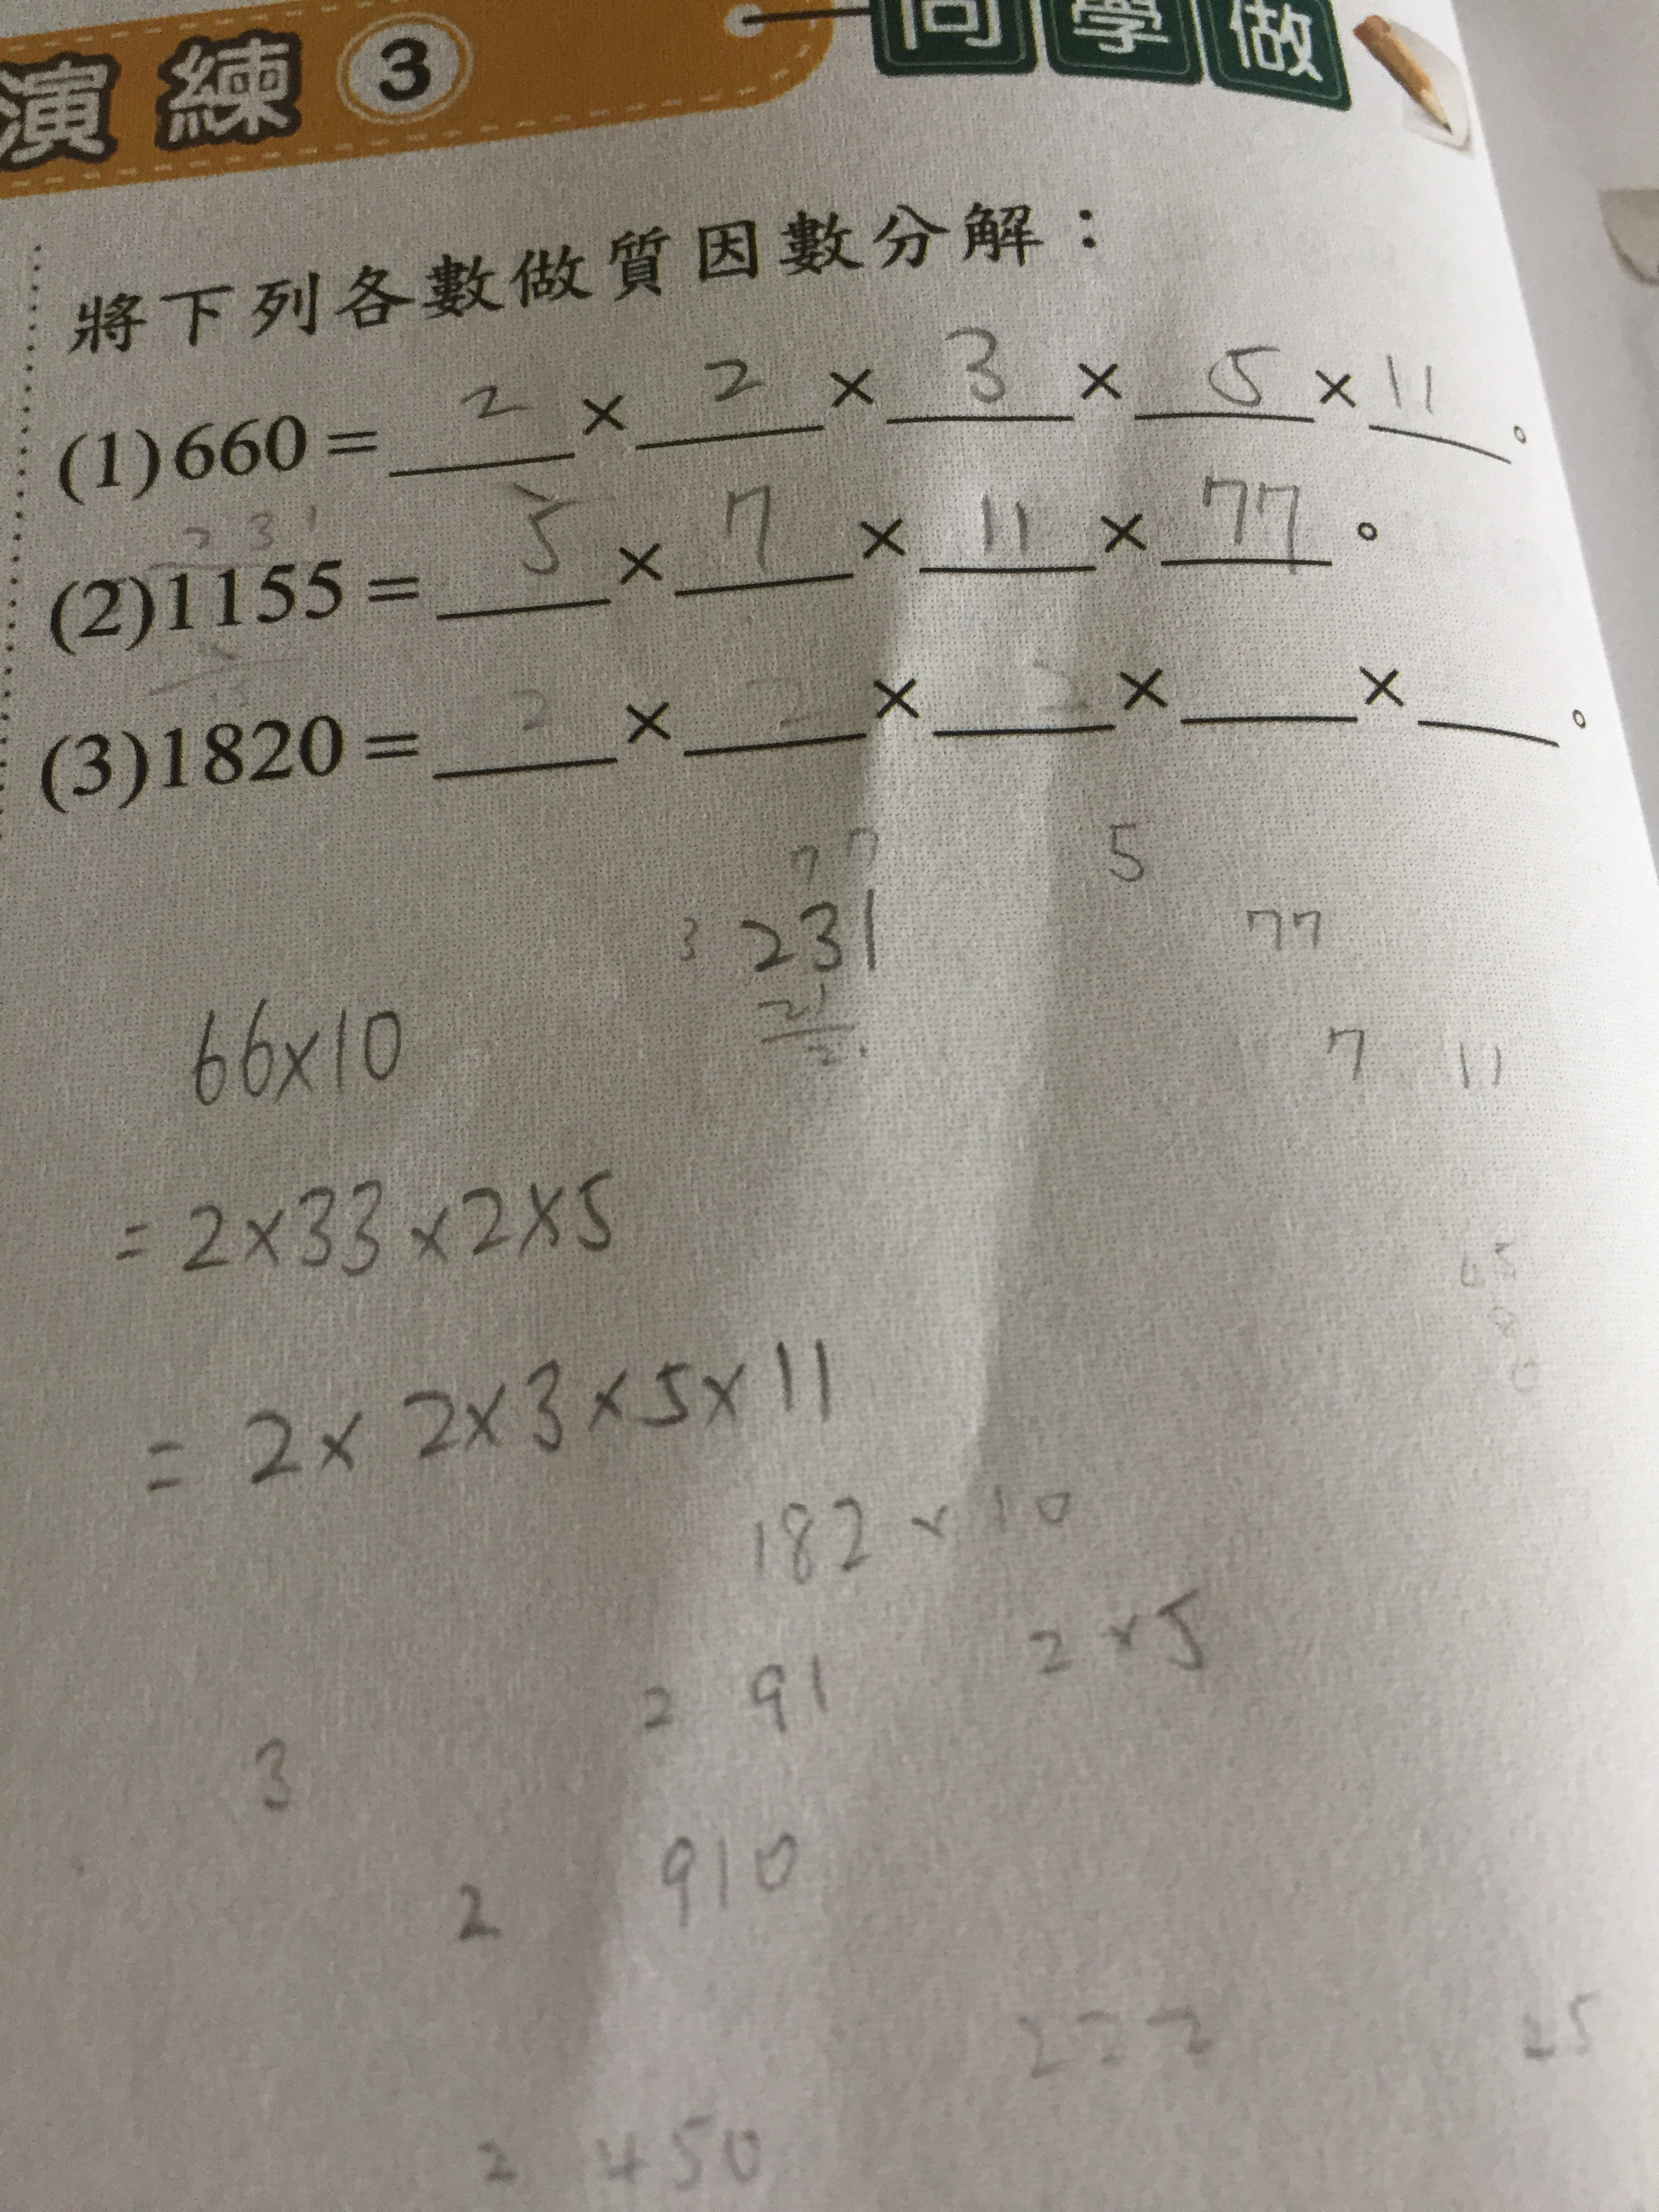 演練 3 同學做
將下列各數做質因數分解：
(1)660= 2 × 2 × 3 × 5 × 11 。
231
(2)1155= 5 × 7 × 11 × 77 。
(3)1820= 2 × 2 × 2 × × 。
77 5
3 231 77
21
66×10 7 11
=2×33×2×5
=2×2×3×5×11
182×10
2 91 2×5
3
2 910
222 25
2 450